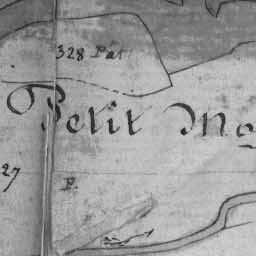 328 Pat
Petit Mo
27
P.